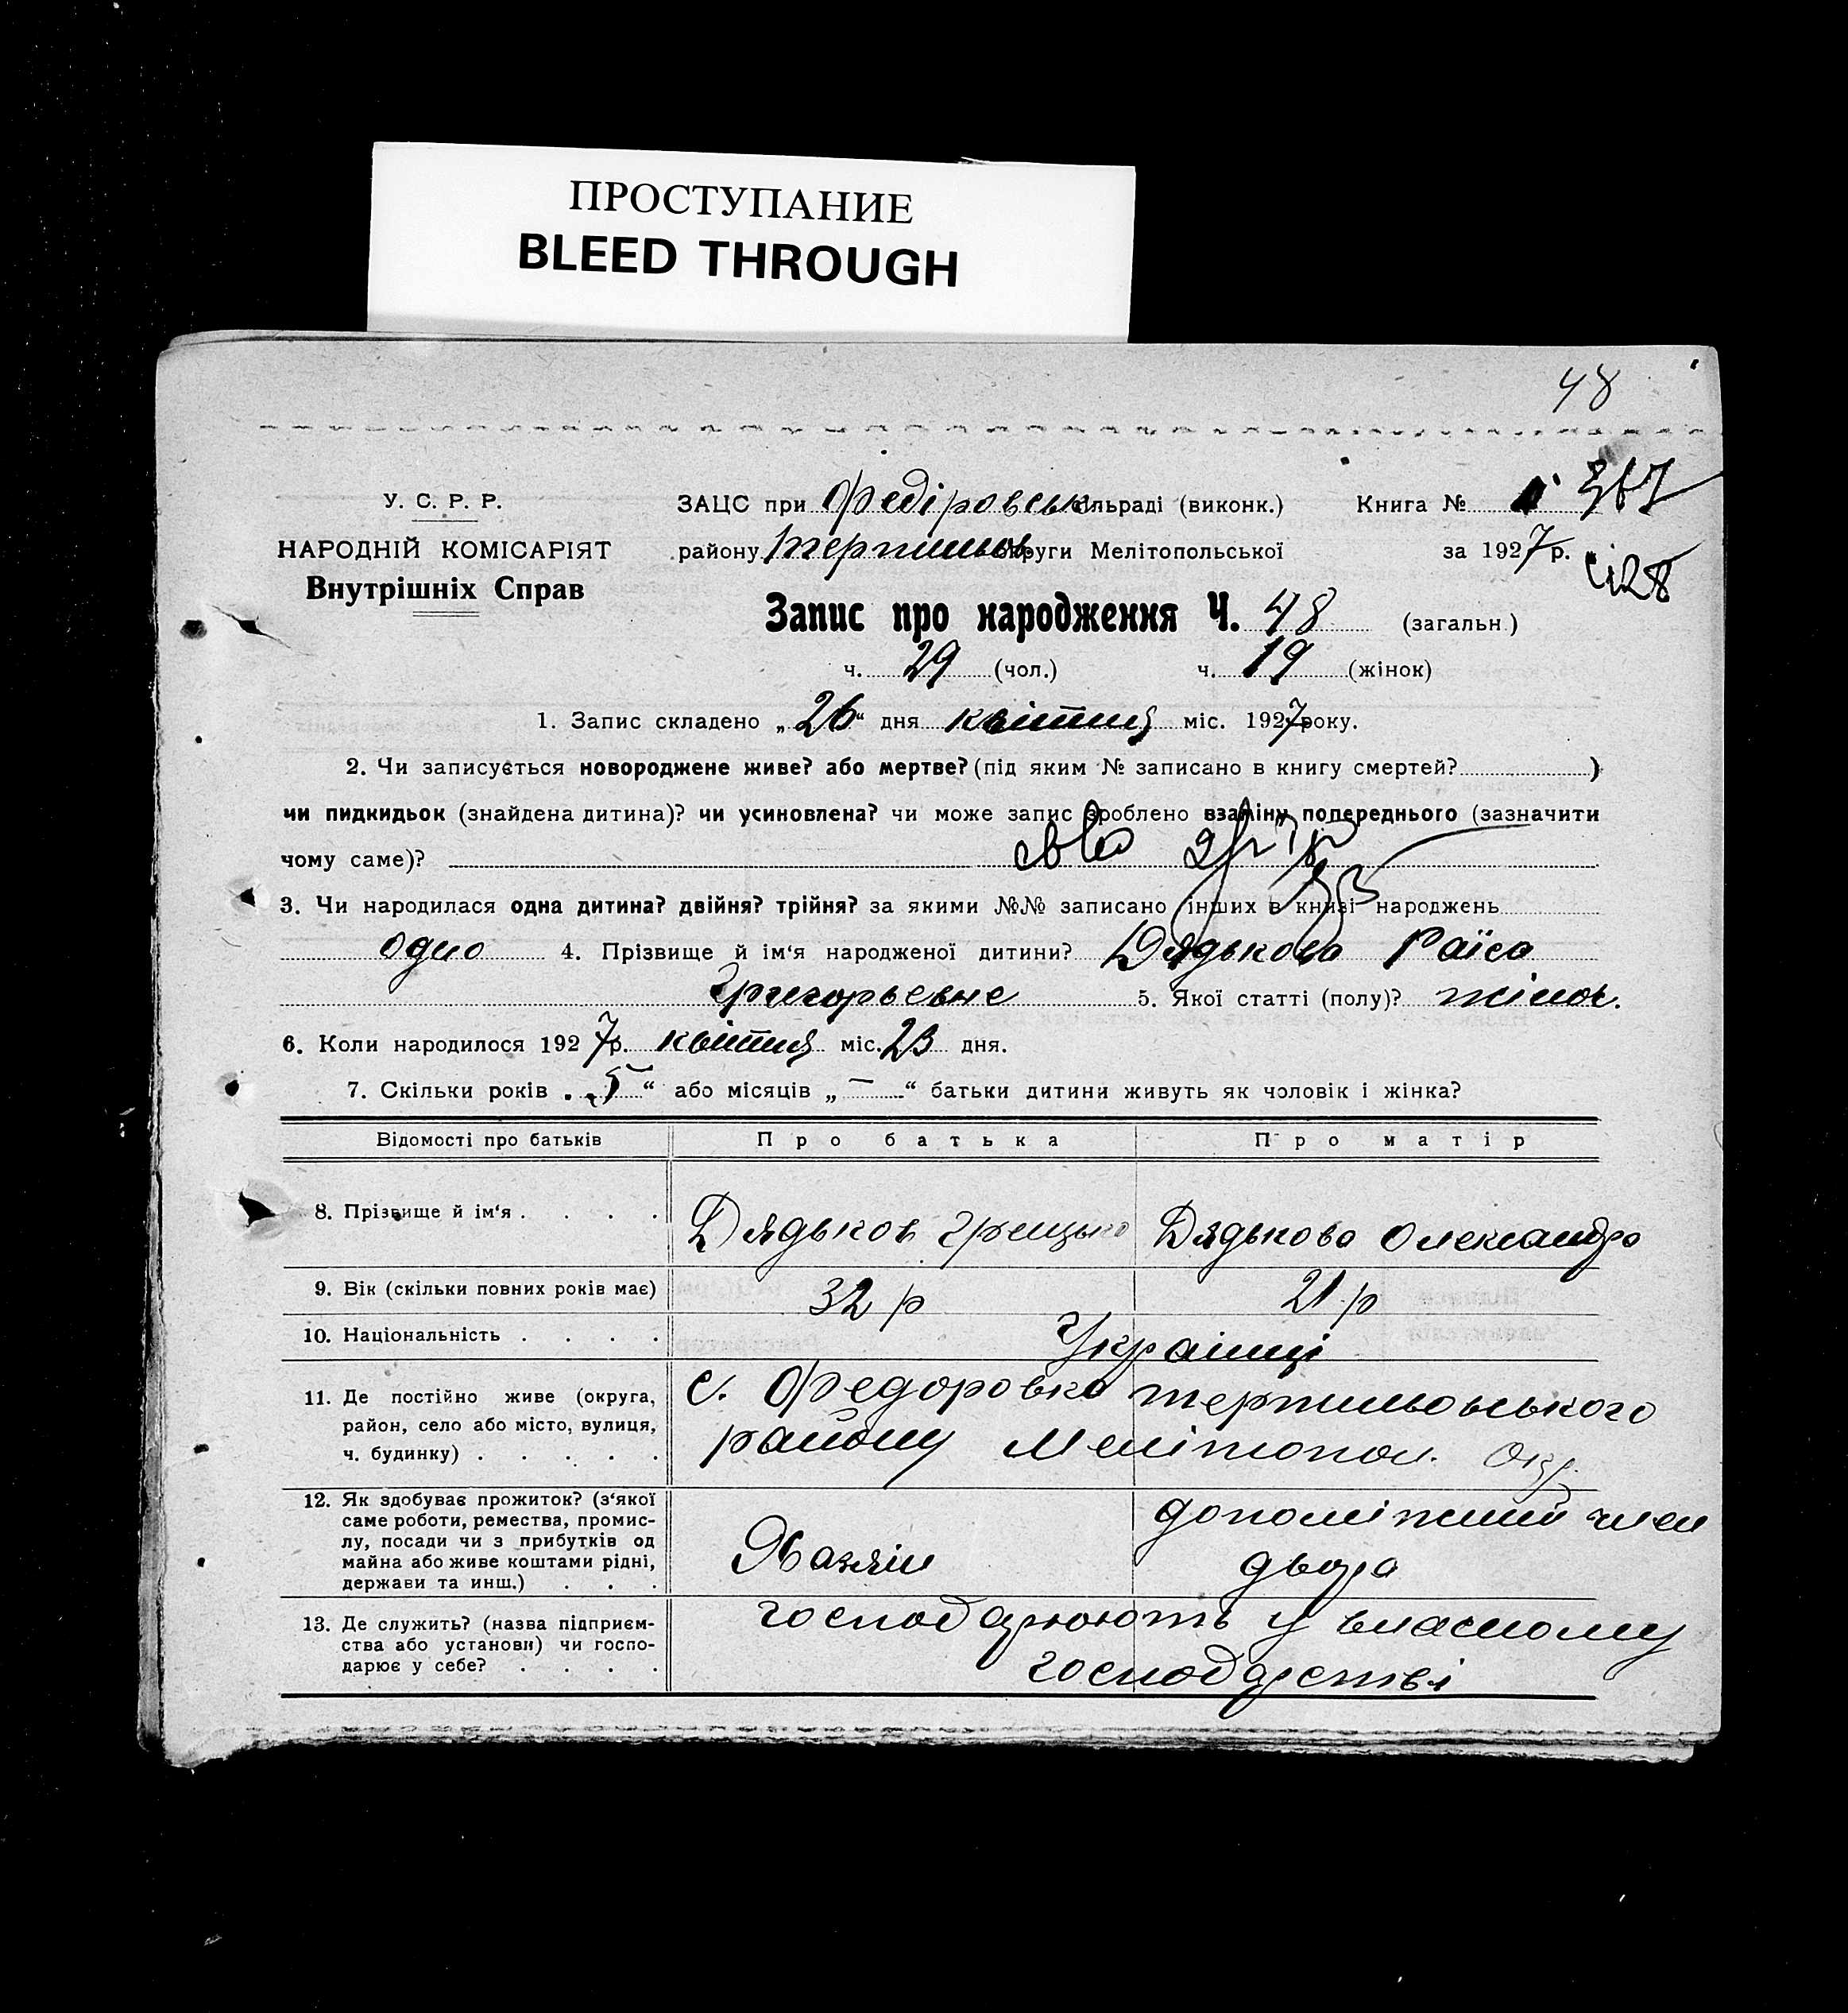 ПРОСТУПАНИЕ
BLEED THROUGH
48
У. С. Р. Р.
НАРОДНІЙ КОМІСАРІЯТ
Внутрішніх Справ
ЗАЦС при Федіровськ сільраді (виконк.) Книга № 367
району Терпиньов. округи Мелітопольської за 1927 р.
Запис про народження Ч. 48 (загальн.)
ч. 29 (чол.) ч. 19 (жінок)
1. Запис складено „26“ дня квітня міс. 1927 року.
2. Чи записується новороджене живе? або мертве? (під яким № записано в книгу смертей? )
чи пидкидьок (знайдена дитина)? чи усиновлена? чи може запис зроблено взаміну попереднього (зазначити
чому саме)?
3. Чи народилася одна дитина? двійня? трійня? за якими №№ записано інших в книзі народжень
одно 4. Прізвище й ім‘я народженої дитини? Дядькова Раїса
Григорьевне 5. Якої статті (полу)? жіноч.
6. Коли народилося 1927 р. квітня міс. 23 дня.
7. Скільки років „5“ або місяців „—“ батьки дитини живуть як чоловік і жінка?
Відомості про батьків Про батька Про матір
8. Прізвище й ім‘я . . . . Дядьков Грицько Дядькова Олександра
9. Вік (скільки повних років має) 32 р 21 р
10. Національність . . . . Українці
11. Де постійно живе (округа, район, село або місто, вулиця, ч. будинку) . . . . . с. Федоровка Терпиньовського
району Мелітопол. Окр.
12. Як здобуває прожиток? (з‘якої саме роботи, ремества, промислу, посади чи з прибутків од майна або живе коштами рідні, держави та инш.) . . . Хазяін допоміжний член
двора
13. Де служить? (назва підприємства або установи) чи господарює у себе? . . . . господарюють у власному
господарстві